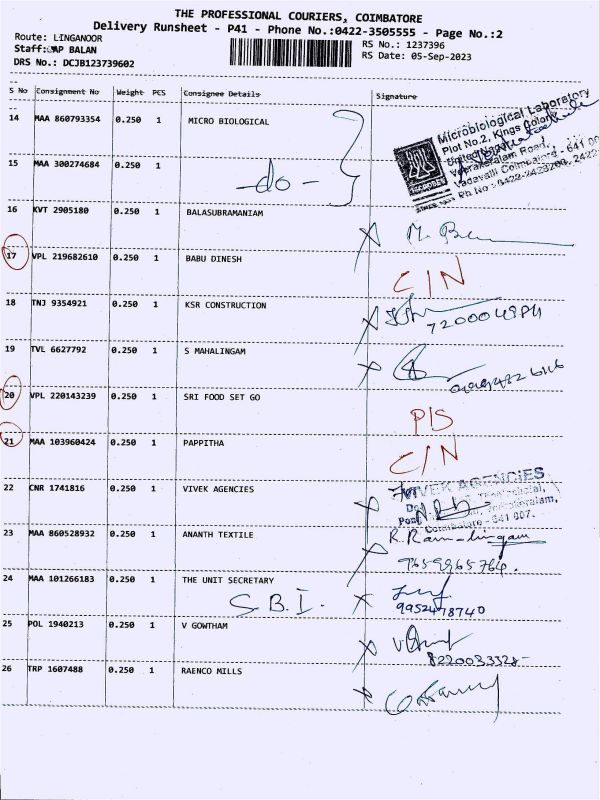 THE PROFESSIONAL COURIERS, COIMBATORE
Delivery Runsheet - P41 - Phone No.:0422-3505555 - Page No.:2
Route: LINGANOOR
RS No.: 1237396
Staff: BALAN
RS Date: 05-Sep-2023
DRS No.: DCJB123739602
S No Consignment No Weight PCS Consignee Details Signature
14 MAA 860793354 0.250 1 MICRO BIOLOGICAL
Microbiological Laboratory
Plot No.2, Kings Colony
Road,
Vadavalli Coimbatore - 641
15 MAA 300274684 0.250 1
-do-
16 KVT 2905180 0.250 1 BALASUBRAMANIAM
17 VPL 219682610 0.250 1 BABU DINESH
C/N
18 TNJ 9354921 0.250 1 KSR CONSTRUCTION
19 TVL 6627792 0.250 1 S MAHALINGAM
20 VPL 220143239 0.250 1 SRI FOOD SET GO
P/S
21 MAA 103960424 0.250 1 PAPPITHA
C/N
22 CNR 1741816 0.250 1 VIVEK AGENCIES
VIVEK AGENCIES
Coimbatore - 641 007.
23 MAA 860528932 0.250 1 ANANTH TEXTILE
9659965764.
24 MAA 101266183 0.250 1 THE UNIT SECRETARY
S.B.I.
9952478740
25 POL 1940213 0.250 1 V GOWTHAM
8220033328
26 TRP 1607488 0.250 1 RAENCO MILLS